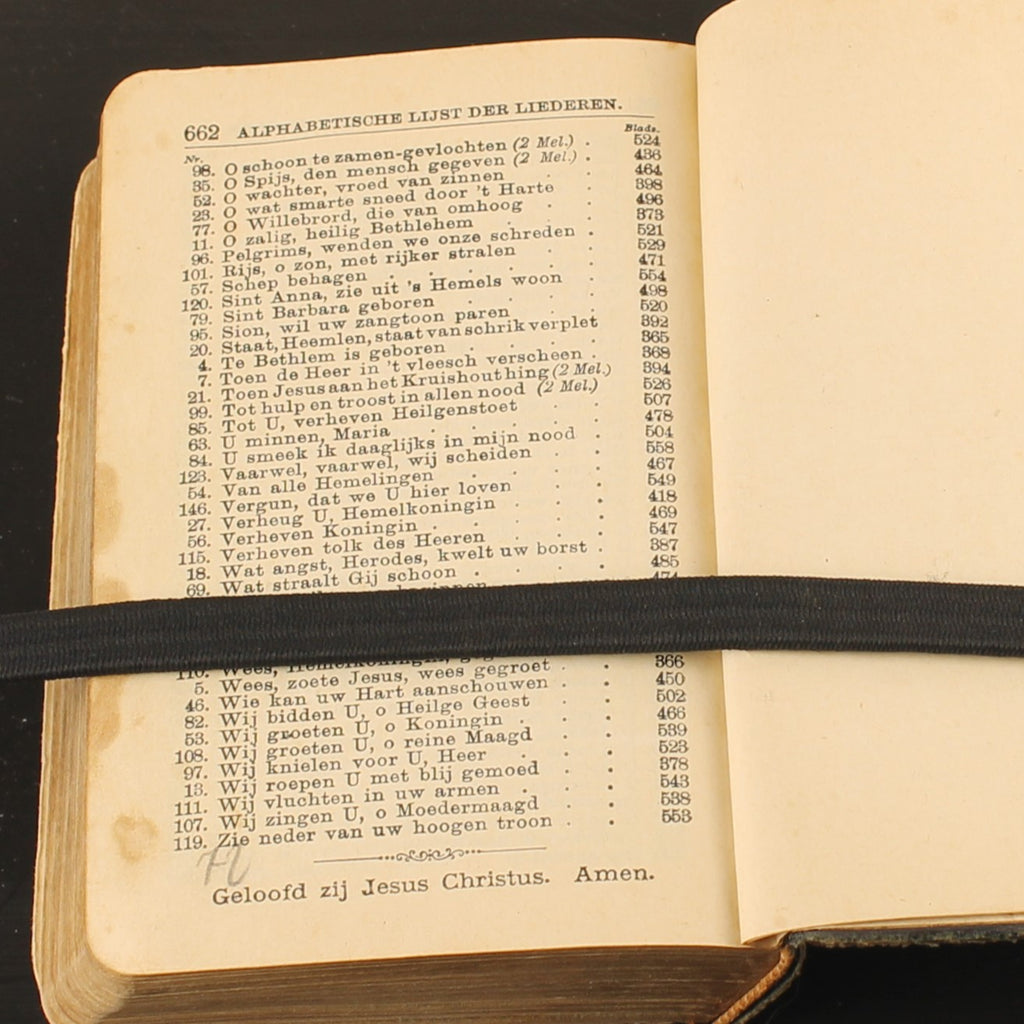 662 ALPHABETISCHE LIJST DER LIEDEREN.
Nr. Bladz.
98. O schoon te zamen-gevlochten (2 Mel.) . 524
35. O Spijs, den mensch gegeven (2 Mel.) . 436
52. O wachter, vroed van zinnen . 464
23. O wat smarte sneed door 't Harte . 398
77. O Willebrord, die van omhoog . . 496
11. O zalig, heilig Bethlehem . . . 373
96. Pelgrims, wenden we onze schreden . 521
101. Rijs, o zon, met rijker stralen . . 529
57. Schep behagen . . . . . . 471
120. Sint Anna, zie uit 's Hemels woon . 554
79. Sint Barbara geboren . . . . 498
95. Sion, wil uw zangtoon paren . . 520
20. Staat, Heemlen, staat van schrik verplet 392
4. Te Bethlem is geboren . . . . 365
7. Toen de Heer in 't vleesch verscheen . 368
21. Toen Jesus aan het Kruishout hing (2 Mel.) 394
99. Tot hulp en troost in allen nood (2 Mel.) 526
85. Tot U, verheven Heilgenstoet . . 507
63. U minnen, Maria . . . . . 478
84. U smeek ik daaglijks in mijn nood . 504
123. Vaarwel, vaarwel, wij scheiden . . 558
54. Van alle Hemelingen . . . . 467
146. Vergun, dat we U hier loven . . 549
27. Verheug U, Hemelkoningin . . . 418
56. Verheven Koningin . . . . . 469
115. Verheven tolk des Heeren . . . 547
18. Wat angst, Herodes, kwelt uw borst . 387
69. Wat straalt Gij schoon . . . . 485
Wees, Hemelkoningin,
5. Wees, zoete Jesus, wees gegroet . . 366
46. Wie kan uw Hart aanschouwen . . 450
82. Wij bidden U, o Heilge Geest . . 502
53. Wij groeten U, o Koningin . . . 466
108. Wij groeten U, o reine Maagd . . 539
97. Wij knielen voor U, Heer . . . 523
13. Wij roepen U met blij gemoed . . 378
111. Wij vluchten in uw armen . . . 543
107. Wij zingen U, o Moedermaagd . . 538
119. Zie neder van uw hoogen troon . . 553
Geloofd zij Jesus Christus. Amen.